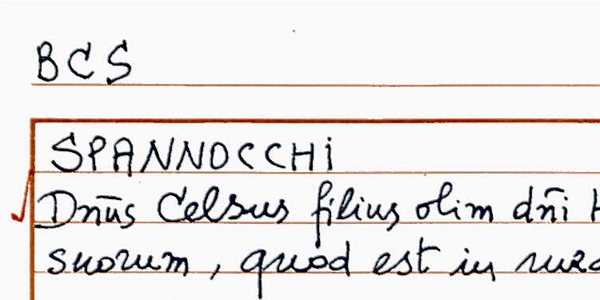 BCS
SPANNOCCHI
Dn̄us Celsus filius olim dn̄i
suorum, quod est in